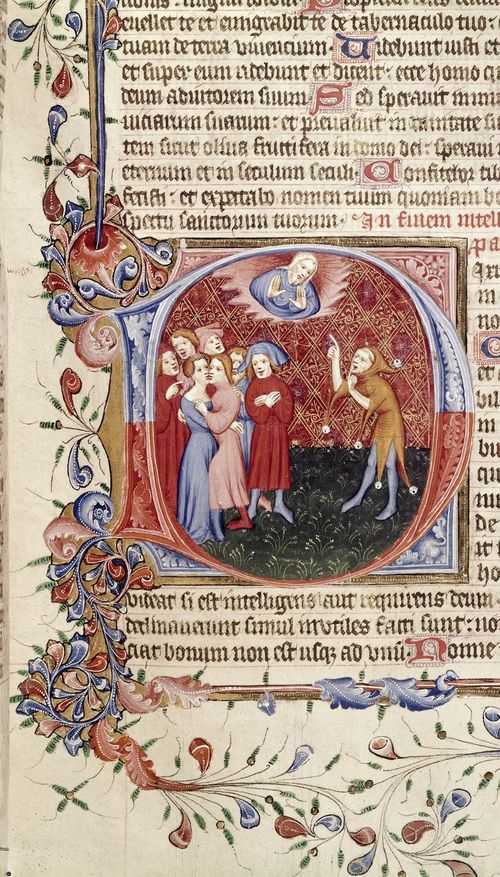 euellet te et emigrabit te de tabernaculo tuo
tuam de terra viuencium Videbunt iusti
et super eum ridebunt et dicent : ecce homo
deum adiutorem suum Sed sperauit in
uiciarum suarum · et preualuit in uanitate su
tem sicut oliua fructifera in domo dei · speraui
eternum et in seculum seculi Confitebor tib
fecisti · et expectabo nomen tuum quoniam b
spectu sanctorum tuorum · In finem intel
uideat si est intelligens aut requirens deum
declinauerunt simul inutiles facti sunt : no
ciat bonum non est usque ad unum Nonne